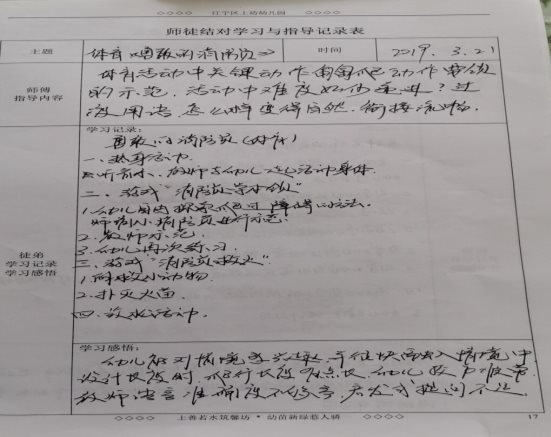 江宁区上坊幼儿园
师徒结对学习与指导记录表
主题 体育《勇敢的消防员》 时间 2019. 3. 21
师傅
指导内容
体育活动中关键动作匍匐爬动作要领
的示范,活动中难度如何递进?过
渡用语怎么样变得自然,衔接流畅.
徒弟
学习记录
学习感悟
学习记录:
勇敢的消防员(体育)
一、热身活动.
听音乐,教师与幼儿一起活动身体.
二、游戏“消防员学本领”
1.幼儿自由探索爬过障碍的方法.
师请小消防员进行示范.
2.教师示范.
3.幼儿再次练习.
三、游戏“消防员救火”
1.解救小动物.
2.扑灭火苗.
四、放松活动.
学习感悟:
幼儿都对情境感兴趣,并很快融入情境中
设计长度时,爬行长度有点长,幼儿
教师语言准确度不够高,启发式提问不足
上善若水筑馨坊 · 幼苗新绿惹人骄
17